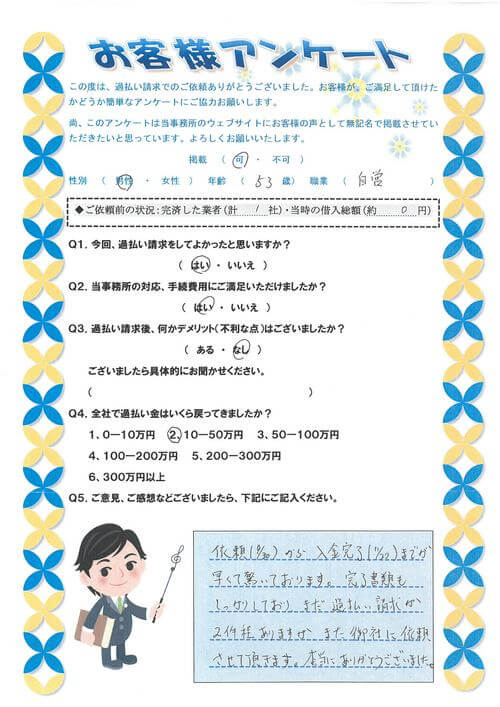 お客様アンケート
この度は、過払い請求でのご依頼ありがとうございました。お客様が、ご満足して頂けた
かどうか簡単なアンケートにご協力お願いします。
尚、このアンケートは当事務所のウェブサイトにお客様の声として無記名で掲載させてい
ただきたいと思っています。よろしくお願いいたします。
掲載 ( 可 ・ 不可 )
性別 ( 男性 ・ 女性 ) 年齢 ( 53 歳) 職業 ( 自営 )
◆ご依頼前の状況:完済した業者(計 1 社)・当時の借入総額(約 0 円)
Q1. 今回、過払い請求をしてよかったと思いますか?
( はい ・ いいえ )
Q2. 当事務所の対応、手続費用にご満足いただけましたか?
( はい ・ いいえ )
Q3. 過払い請求後、何かデメリット(不利な点)はございましたか?
( ある ・ なし )
ございましたら具体的にお聞かせください。
( )
Q4. 全社で過払い金はいくら戻ってきましたか?
1、0ー10万円 2、10ー50万円 3、50ー100万円
4、100ー200万円 5、200ー300万円
6、300万円以上
Q5. ご意見、ご感想などございましたら、下記にご記入ください。
依頼( ) から 入金完了( )までが
早くて驚いております。完了書類も
しっかりしており まだ 過払い請求が
2件程ありますが、また 御社に依頼
させて頂きます。本当にありがとうございました。